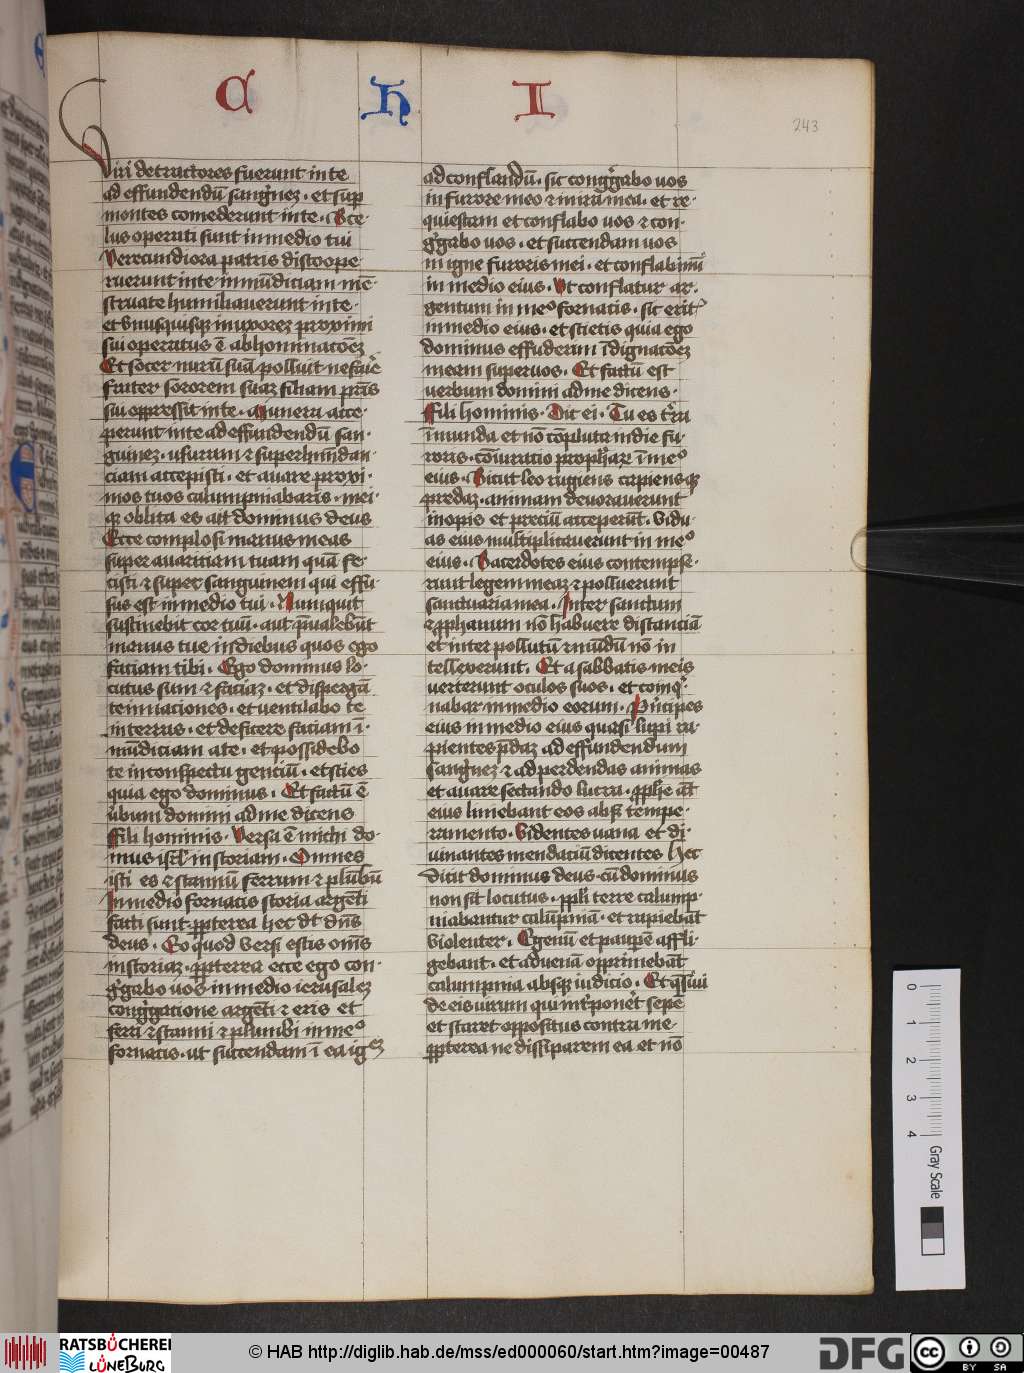 C H I
243
Viri detractores fuerunt in te
ad effundendū sangͥnez . et suꝑ
montes comederunt in te . Sce-
lus operati sunt in medio tui
Verecundiora patris discoope
ruerunt in te inmūdiciam mē-
struate humiliauerunt in te .
et vnusquisqꝫ in uxorez proximi
sui operatus ē abhominacōez
Et socer nurū suā polluit nefarie
frater sororem suaz filiam pr̄is
sui oppressit in te . Munera acce-
perunt in te ad effundendū san-
guinez . usuram ⁊ superhabūdan-
ciam accepisti . et auare proxi-
mos tuos calumpniabaris . mei-
qꝫ oblita es ait dominus deus
Ecce complosi manus meas
super auaritiam tuam quā fe-
cisti ⁊ super sanguinem qui effu-
sus est in medio tui . Nunquit
sustinebit cor tuū . aut p̄ualebūt
manus tue in diebus quos ego
faciam tibi . Ego dominus lo-
cutus sum ⁊ faciaz . et dispergā
te in naciones . et uentilabo te
in terras . et deficere faciam ī-
mūdiciam a te . et possidebo
te in conspectu genciū . et scies
quia ego dominus . Et factū ē
ūbum domini ad me dicens
Fili hominis . Versa ē michi do-
mus isr̄l in scoriam . Omnes
isti es ⁊ stannū ferrum ⁊ plūbū
In medio fornacis scoria argēti
facti sunt . ꝓpterea hec dt dn̄s
deus . Eo quod versi estis om̄s
in scoriaz . ꝓpterea ecce ego con-
gͬgabo uos in medio ierusalez
congͬgatione argēti ⁊ eris et
ferri ⁊ stanni ⁊ plumbi in meͦ
fornacis . ut succendam ī ea igēz
ad conflandū . sic congͬgabo uos
in furore meo ⁊ in ira mea . et re-
quiescam et conflabo uos ⁊ con-
gͬgabo uos . et succendam uos
in igne furoris mei . et conflabimīi
in medio eius . Vt conflatur ar-
gentum in meͦ fornacis . sic eritꝭ
in medio eius . et scietis quia ego
dominus effuderim īdignacōez
meam super uos . Et factū est
verbum domini ad me dicens .
Fili hominis . Dic ei . Tu es tr̄ra
īmunda et nō cōpluta in die fu-
roris . cōiuratio prophetar̄ ī meͦ
eius . Sicut leo rugiens capiensqꝫ
predaz . animam deuorauerunt
inopis et preciū acceperūt . Vidu-
as eius multiplicauerunt in meͦ
eius . Sacerdotes eius contempse-
runt legem meaz ⁊ polluerunt
sanctuaria mea . Inter sanctum
⁊ ꝓphanum nō habuere distanciā
et inter pollutū ⁊ mūdū nō in
tellexerunt . Et a sabbatis meis
verterunt oculos suos . et coinqͥ-
nabar in medio eorum . Pͥncipes
eius in medio eius quasi lupi ra-
pientes p̄daz ad effundendum
sangͥnez ⁊ ad perdendas animas
et auare sectando lucra . ꝓphe aūt
eius liniebant eos absqꝫ tēpe-
ramento . Videntes uana et di-
uinantes mendaciū dicentes hec
dicit dominus deus . cū dominus
non sit locutus . ppl̄i terre calump-
niabantur calūpniā . et rapiebāt
violenter . Egenū et paupēe affli-
gebant . et aduenā opprimebāt
calumpnia absqꝫ iudicio . Et qͣsiui
de eis uirum qui intͬponeret sepē
et staret oppositus contra me-
ꝓpterea ne dissiparem ea et nō
0 1 2 3 4
Gray Scale
RATSBÜCHEREI LÜNEBURG
© HAB http://diglib.hab.de/mss/ed000060/start.htm?image=00487
DFG
cc BY SA